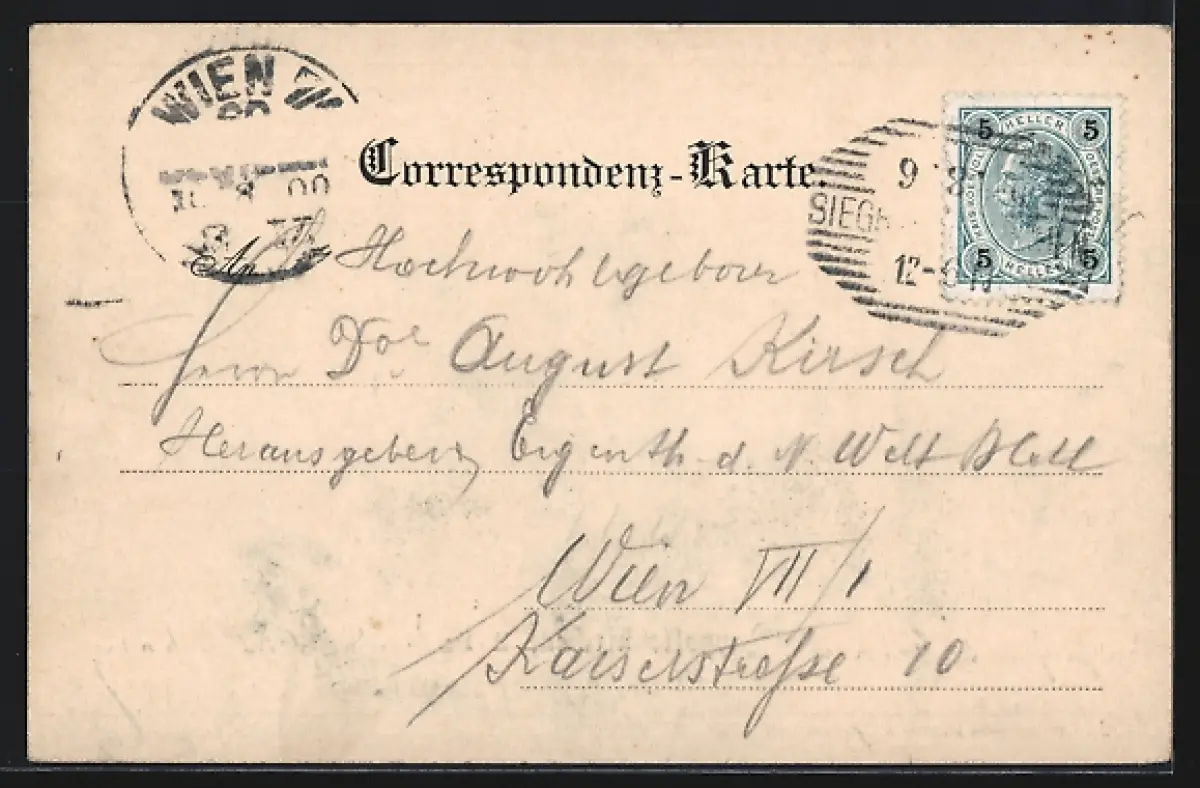 WIEN
Correspondenz-Karte.
5 HELLER 5
9 8
SIEGH
12-
5 HELLER 5
An
Hochwohlgeboren
Herrn Dor August Kirsch
Herausgeber, Eigenth. d. N. Welt Blatt
Wien VII/1
Kaiserstraße 10